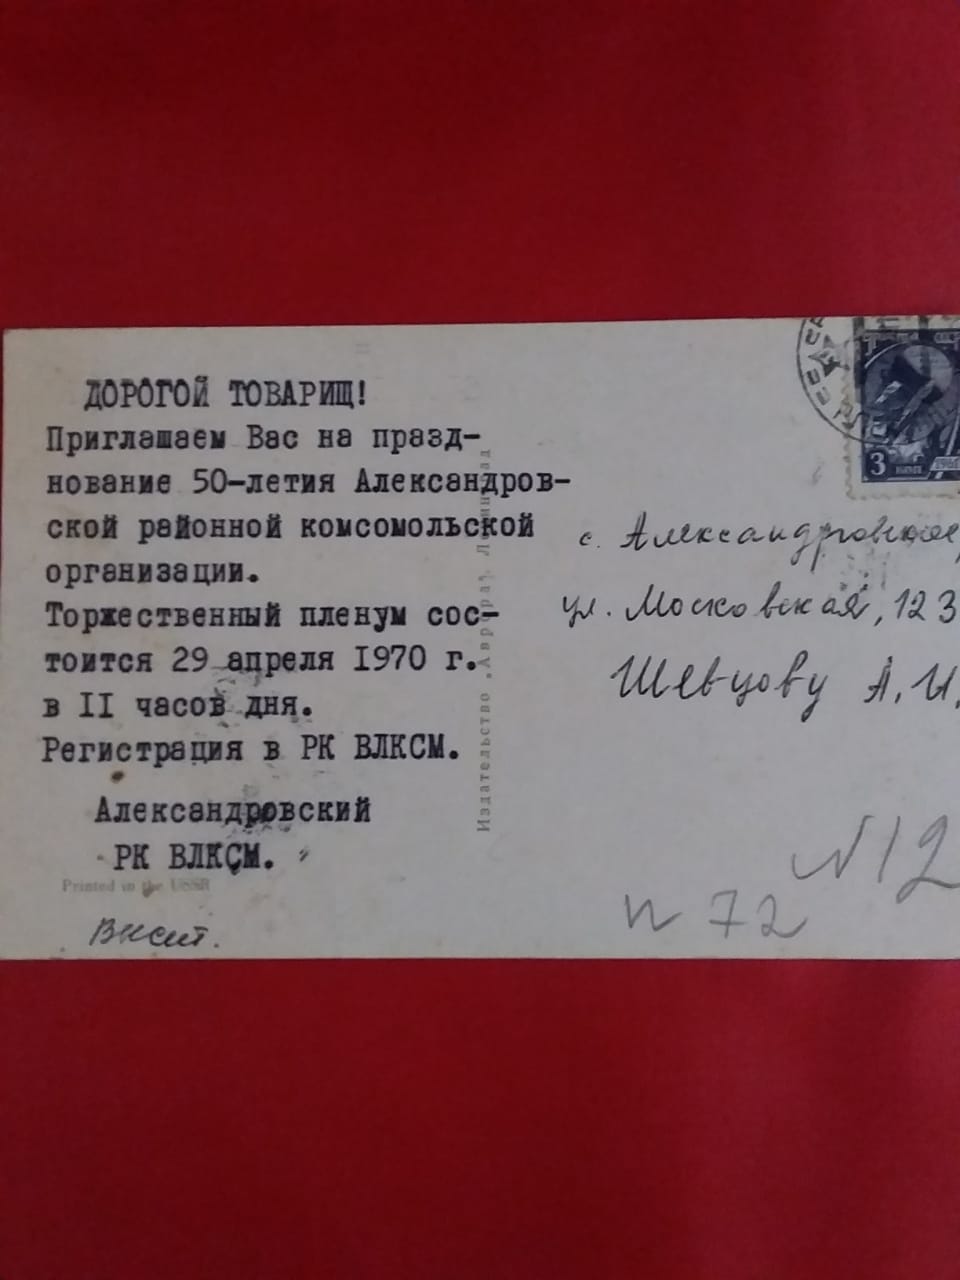 ДОРОГОЙ ТОВАРИЩ!
Приглашаем Вас на празд-
нование 50-летия Александров-
ской районной комсомольской
организации.
Торжественный пленум сос-
тоится 29 апреля 1970 г.
в II часов дня.
Регистрация в РК ВЛКСМ.
Александровский
РК ВЛКСМ.
Printed in the USSR
Издательство „Аврора", Ленинград
3
1961
с. Александровское,
ул. Московская, 123
Шевцову А.И.
N 12
N 72